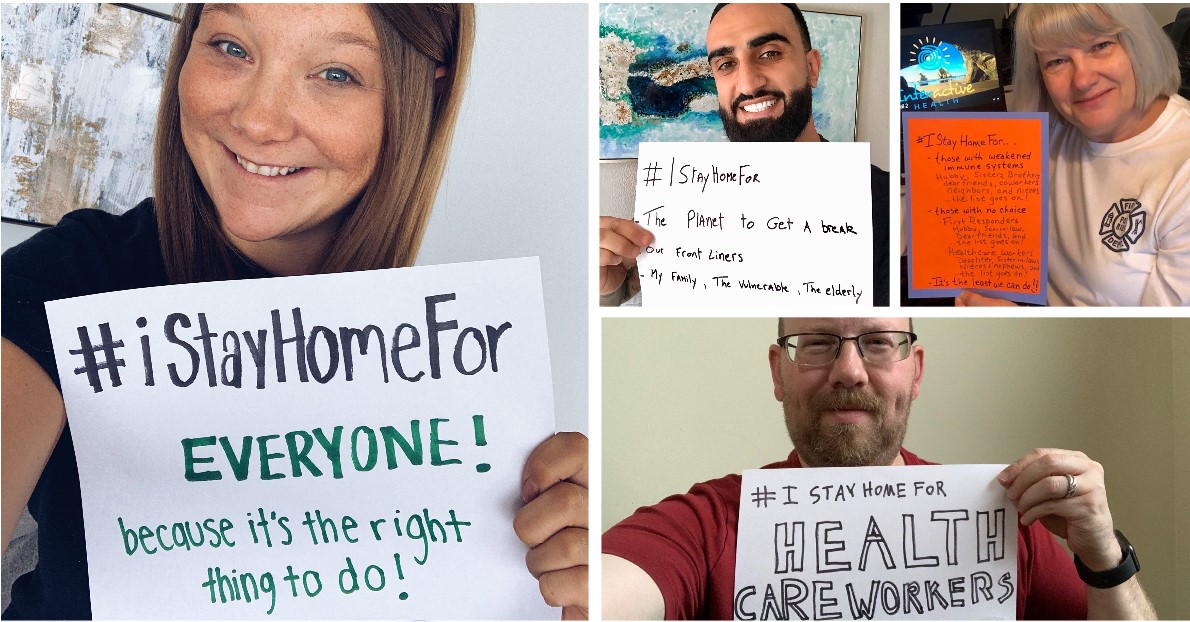 #iStayHomeFor
EVERYONE!
because it's the right
thing to do!
#IStayHomeFor
- The Planet to Get A break
- Our Front Liners
- My Family, The Vulnerable, The elderly
Interactive
HEALTH
#I Stay Home For...
- those with weakened
immune systems
Hubby, Sisters, Brother,
dear friends, coworkers
neighbors, and nieces
...the list goes on!
- those with no choice
First Responders
Hubby, Son-in-law,
Dear friends, and
the list goes on!
Healthcare workers
Daughter, Sister-in-laws
Nieces & nephews, and
the list goes on!
- It's the least we can do!!
FIRE
DEPT
#I STAY HOME FOR
HEALTH
CARE WORKERS